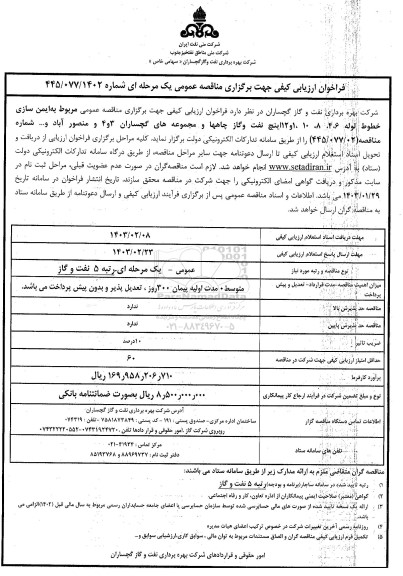 شرکت ملی نفت ایران
شرکت ملی مناطق نفتخیز جنوب
شرکت بهره برداری نفت وگاز گچساران ( سهامی خاص )
فراخوان ارزیابی کیفی جهت برگزاری مناقصه عمومی یک مرحله ای شماره ۴۴۵/۰۷۷/۱۴۰۲
شرکت بهره برداری نفت و گاز گچساران در نظر دارد فراخوان ارزیابی کیفی جهت برگزاری مناقصه عمومی مربوط به ایمن سازی
خطوط لوله ۲،۶، ۸، ۱۰، ۱۲ اینچ نفت وگاز چاهها و مجموعه های گچساران ۳و۴ و منصور آباد و...شماره
مناقصه(۴۴۵/۰۷۷/۰۲) را از طریق سامانه تدارکات الکترونیکی دولت برگزار نماید. کلیه مراحل برگزاری فراخوان ارزیابی از دریافت و
تحویل اسناد استعلام ارزیابی کیفی تا ارسال دعوتنامه جهت سایر مراحل مناقصه، از طریق درگاه سامانه تدارکات الکترونیکی دولت
(ستاد) به آدرس www.setadiran.ir انجام خواهد شد. لازم است مناقصه گران در صورت عدم عضویت قبلی، مراحل ثبت نام در
سایت مذکور و دریافت گواهی امضای الکترونیکی را جهت شرکت در مناقصه محقق سازند. تاریخ انتشار فراخوان در سامانه تاریخ
۱۴۰۳/۰۱/۲۹ می باشد. اطلاعات و اسناد مناقصه عمومی پس از برگزاری فرآیند ارزیابی کیفی و ارسال دعوتنامه از طریق سامانه ستاد
به مناقصه گران ارسال خواهد شد.
مهلت دریافت اسناد استعلام ارزیابی کیفی ۱۴۰۳/۰۲/۰۸
مهلت ارسال پاسخ استعلام ارزیابی کیفی ۱۴۰۳/۰۲/۲۳
نوع مناقصه و رتبه مورد نیاز عمومی - یک مرحله ای-رتبه ۵ نفت و گاز
میزان اهمیت مناقصه، مدت قرارداد- تعدیل و پیش پرداخت متوسط- مدت اولیه پیمان ۳۰۰ روز، تعدیل پذیر و بدون پیش پرداخت می باشد.
مناقصه حد پذیرش بالا ندارد
مناقصه حد پذیرش پایین ندارد
ضریب تاثیر ۱۰درصد
حداقل امتیاز ارزیابی کیفی جهت شرکت در مناقصه ۶۰
برآورد کارفرما ۱۶۹٫۹۵۸٫۲۰۶٫۷۱۰ ریال
نوع و مبلغ تضمین شرکت در فرآیند ارجاع کار پیمانکاری ۸٫۵۰۰٫۰۰۰٫۰۰۰ ریال بصورت ضمانتنامه بانکی
اطلاعات تماس دستگاه مناقصه گزار آدرس شرکت بهره برداری نفت و گاز گچساران
ساختمان اداره مرکزی- صندوق پستی : ۱۹۱ - کد پستی: ۷۵۸۱۸۷۳۸۴۹ - تلفن: ۰۷۴۳۱۹
روبروی شرکت گاز .امور حقوقی و قرار دادها تلفن
تلفن های سامانه ستاد مرکز تماس: ۴۱۹۳۴-۰۲۱
دفتر ثبت نام: ۸۸۹۶۹۷۳۷ و ۸۵۱۹۳۷۶۸
مناقصه گران متقاضی ملزم به ارائه مدارک زیر از طریق سامانه ستاد می باشند:
۱) رتبه تایید شده در سامانه ساجار(برنامه و بودجه) رتبه ۵ نفت و گاز
۲) گواهی (معتبر) صلاحیت ایمنی پیمانکاران از اداره تعاون، کار و رفاه اجتماعی.
۳) ارائه یک نسخه تایید شده از صورت های مالی حسابرسی شده توسط سازمان حسابرسی یا اعضای جامعه حسابداران رسمی مربوط به سال مالی قبل (۱۴۰۲) الزامی می
باشد.
روزنامه رسمی آخرین تغییرات شرکت در خصوص ترکیب اعضای هیات مدیره
تکمیل فرم ارزیابی کیفی مناقصه گران و الصاق مستندات مربوط به توان مالی ، سوابق کاری،ارزشیابی سوابق و...
امور حقوقی و قراردادهای شرکت بهره برداری نفت و گاز گچساران